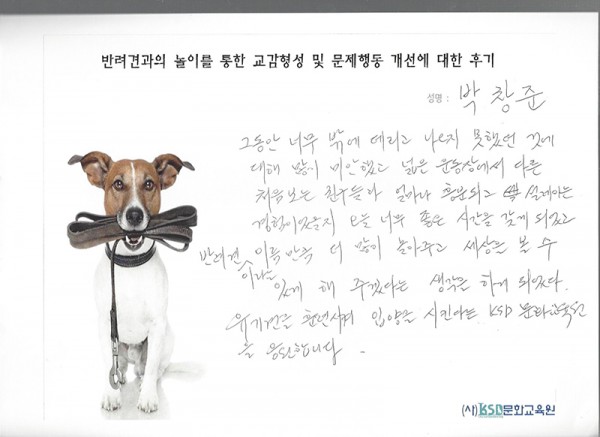 반려견과의 놀이를 통한 교감형성 및 문제행동 개선에 대한 후기
성명 : 박창준
그동안 너무 밖에 데리고 나오지 못했던 것에
대해 많이 미안했고 넓은 운동장에서 다른
처음보는 친구들과 얼마나 흥분되고 설레이는
경험이었을지 오늘 너무 좋은 시간을 갖게 되었고
반려견 이라는 이름 만큼 더 많이 놀아주고 세상을 볼 수
있게 해 주겠다는 생각을 하게 되었다.
유기견을 훈련시켜 입양을 시킨다는 KSD 문화교육원
을 응원합니다.
(사)KSD문화교육원